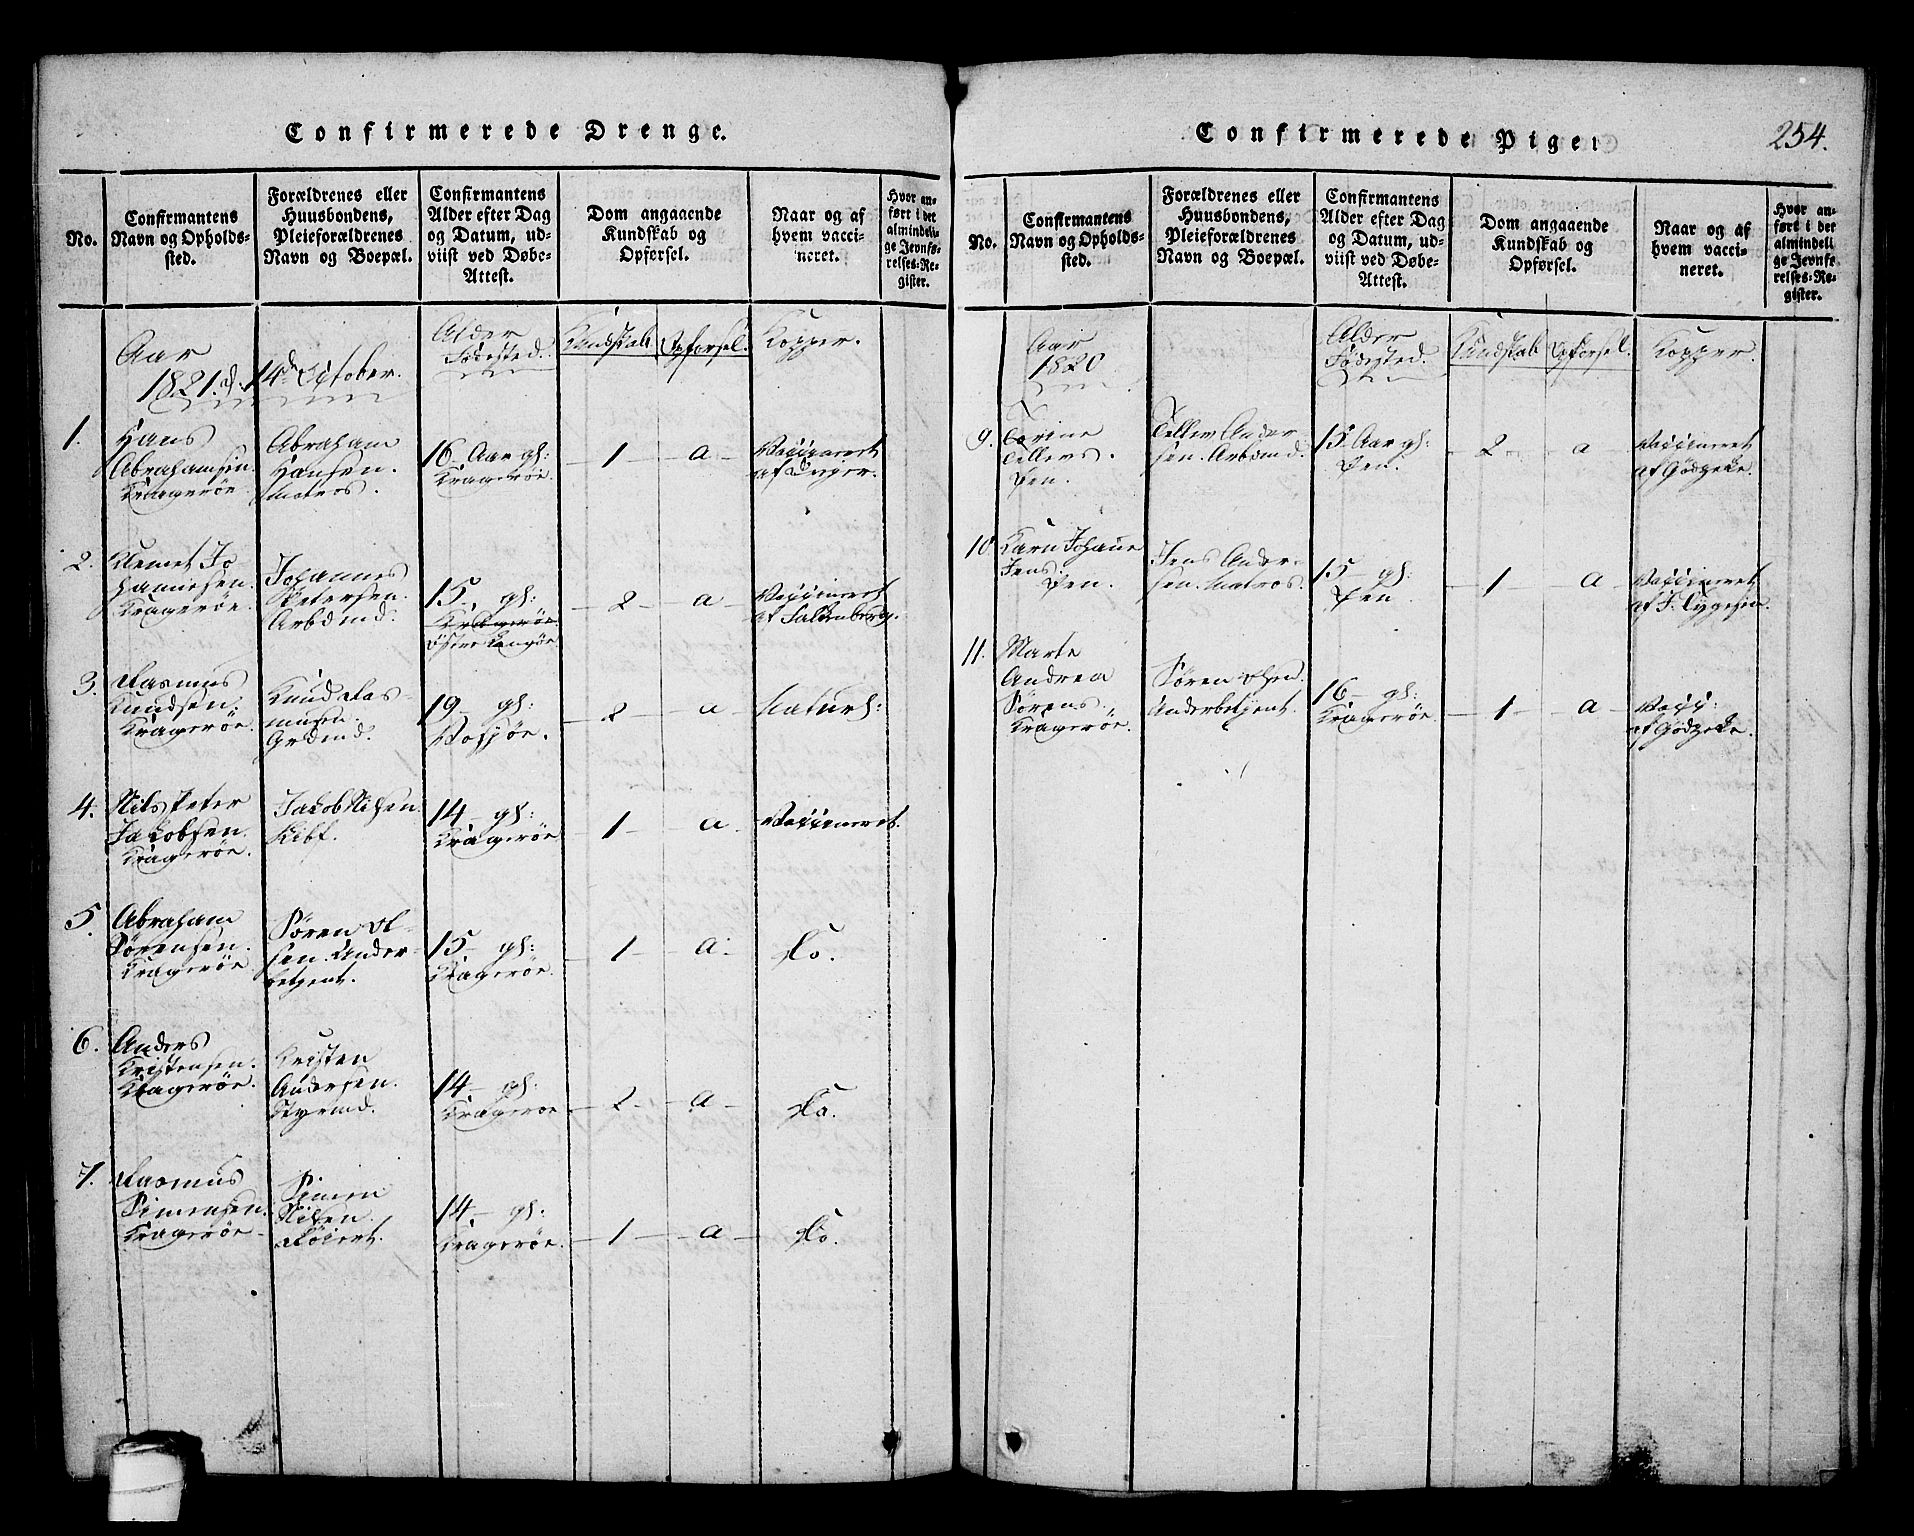 Confirmerede Drenge.
No.
Confirmantens
Navn og Opholds-
sted.
Forældrenes eller
Huusbondens,
Pleieforældrenes
Navn og Boepæl.
Confirmantens
Alder efter Dag
og Datum, ud-
viist ved Døbe-
Attest.
Dom angaaende
Kundskab og
Opførsel.
Naar og af
hvem vacci-
neret.
Hvor an-
ført i det
almindeli-
ge Jevnfø-
relses-Re-
gister.
Aar
1821. d. 14de October.
Alder
Fødested.
Kundskab
Opførsel.
Kopper.
1.
Hans
Abrahamsen.
Kragerøe
Abraham
Hansen.
Matros.
16 Aar gl:
Kragerøe.
1
a
Vaccineret
2.
Johannesen.
Kragerøe.
Johannes
Petersen.
Arbdmd.
15 gl:
Kragerøe.
Øster Langøe
2
a
Vaccineret
af Falkenberg.
3.
Rasmus
Knudsen.
Kragerøe
Knud Ras-
musen
19 gl:
2
a
Naturl:
4.
Nils Peter
Jakobsen.
Kragerøe.
Jakob Nilsen.
14 gl:
Kragerøe
1
a
Vaccineret.
5.
Abraham
Sørensen.
Kragerøe
Søren Ol-
sen. Under-
betjent.
15 gl:
Kragerøe.
1
a.
do.
6.
Anders
Kristensen.
Kragerøe.
Kristen
Andersen.
Styrmd.
14 gl:
Kragerøe
2
a
do.
7.
Rasmus
Simensen.
Kragerøe
Simen
Nilsen.
14 gl:
Kragerøe.
1
a
do.
Confirmerede Piger
254.
No.
Confirmantens
Navn og Opholds-
sted.
Forældrenes eller
Huusbondens,
Pleieforældrenes
Navn og Boepæl.
Confirmantens
Alder efter Dag
og Datum, ud-
viist ved Døbe-
Attest.
Dom angaaende
Kundskab og
Opførsel.
Naar og af
hvem vacci-
neret.
Hvor an-
ført i det
almindeli
ge Jevnfø-
relses-Re-
gister.
Aar
1820
Alder
Fødested.
Kundskab
Opførsel.
Kopper.
9.
Tellevs.
Øen.
Tellev Ander
sen. Arbdmd.
15 Aar gl:
Øen.
2
a
Vaccineret
af Gödzeke.
10
Karn Johane
Jens.
Øen.
Jens Ander-
sen. Matros.
15 gl:
Øen
1
a
Vaccineret
11.
Marte
Andrea
Sørens.
Kragerøe.
Søren Olsen.
Underbetjent.
16 gl:
Kragerøe.
1
a
Vacc:
af Gödzeke.